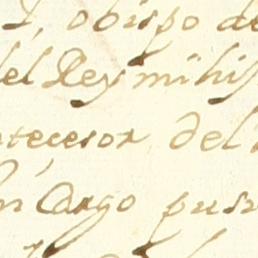 obispo de
del Rey mi hij
ntecesor del
Cargo pusi